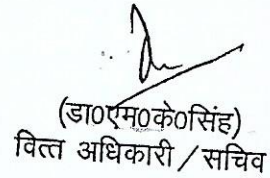 (डा0एम0के0सिंह)
वित्त अधिकारी / सचिव